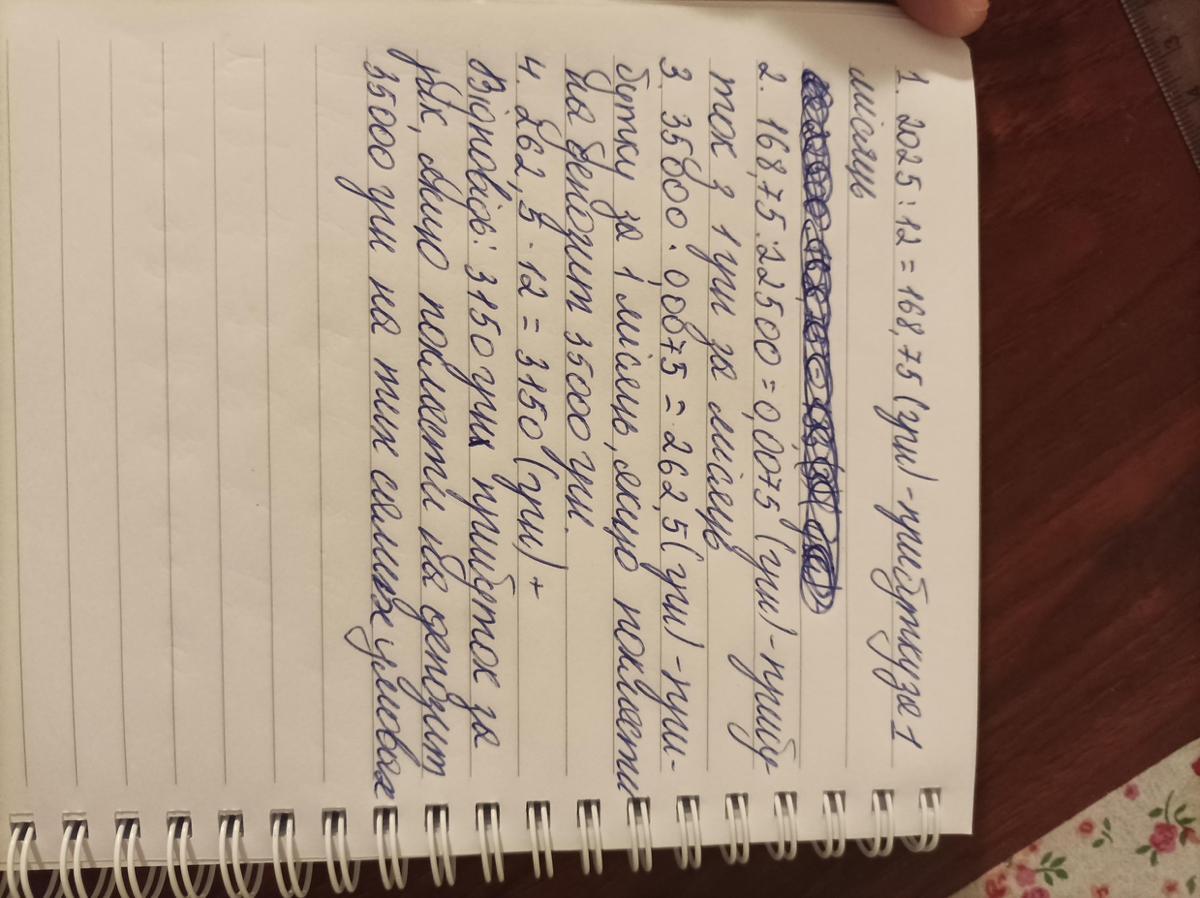 1. 2025 : 12 = 168,75 (грн) - прибутку за 1
місяць
2. 168,75 : 22500 = 0,0075 (грн) - прибу
ток з 1 грн за місяць
3. 35000 · 0,0075 = 262,5 (грн) - при-
бутку за 1 місяць, якщо покласти
на депозит 35000 грн.
4. 262,5 · 12 = 3150 (грн) +
Відповідь: 3150 грн прибуток за
рік, якщо покласти на депозит
35000 грн на тих самих умовах